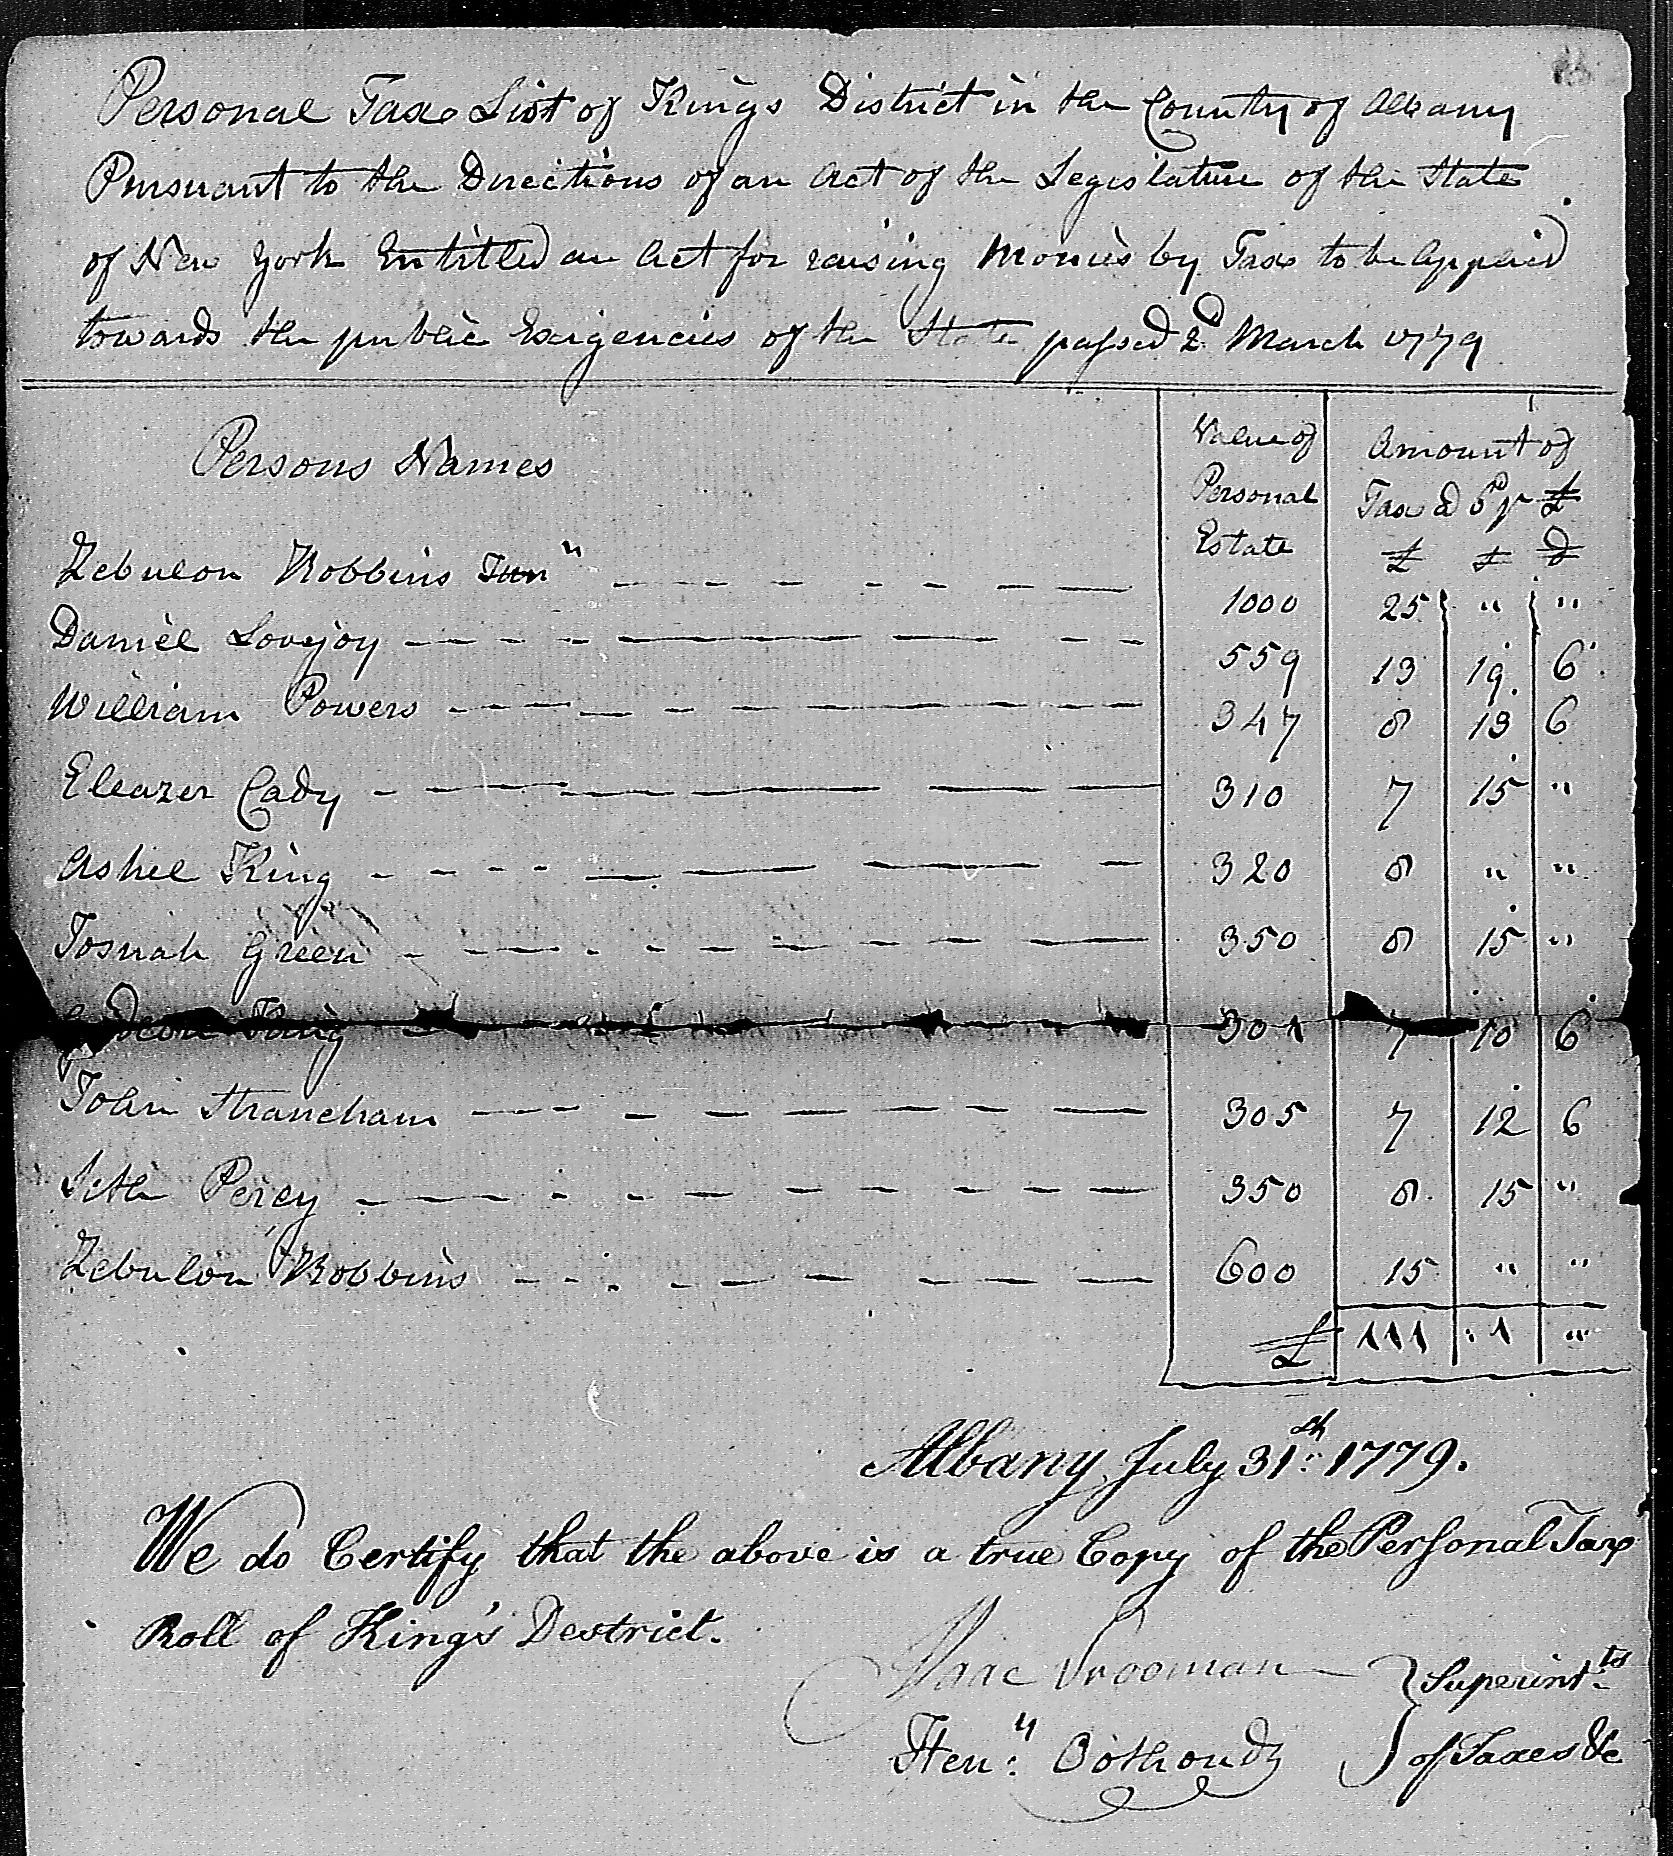 Personal Tax List of Kings District in the County of Albany
Pursuant to the Directions of an Act of the Legislature of the State
of New York Entitled an Act for raising Monies by Tax to be Applied
towards the public Exigencies of the State passed 2d March 1779
Persons Names Value of Personal Estate Amount of Tax a 6d pr £
£ s D
Zebulon Robbins Junr 1000 25 " "
Daniel Lovejoy 559 13 19 6
William Powers 347 8 13 6
Eleazer Cady 310 7 15 "
Ashel King 320 8 " "
Josuah Green 350 8 15 "
Gideon King 301 7 10 6
John Strancham 305 7 12 6
Seth Percy 350 8 15 "
Zebulon Robbins 600 15 " "
£ 111 1 "
Albany July 31th 1779.
We do Certify that the above is a true Copy of the Personal Tax
Roll of King's Destrict.
Isaac Vrooman Superintts
Heny Oothoudt of Taxes &c